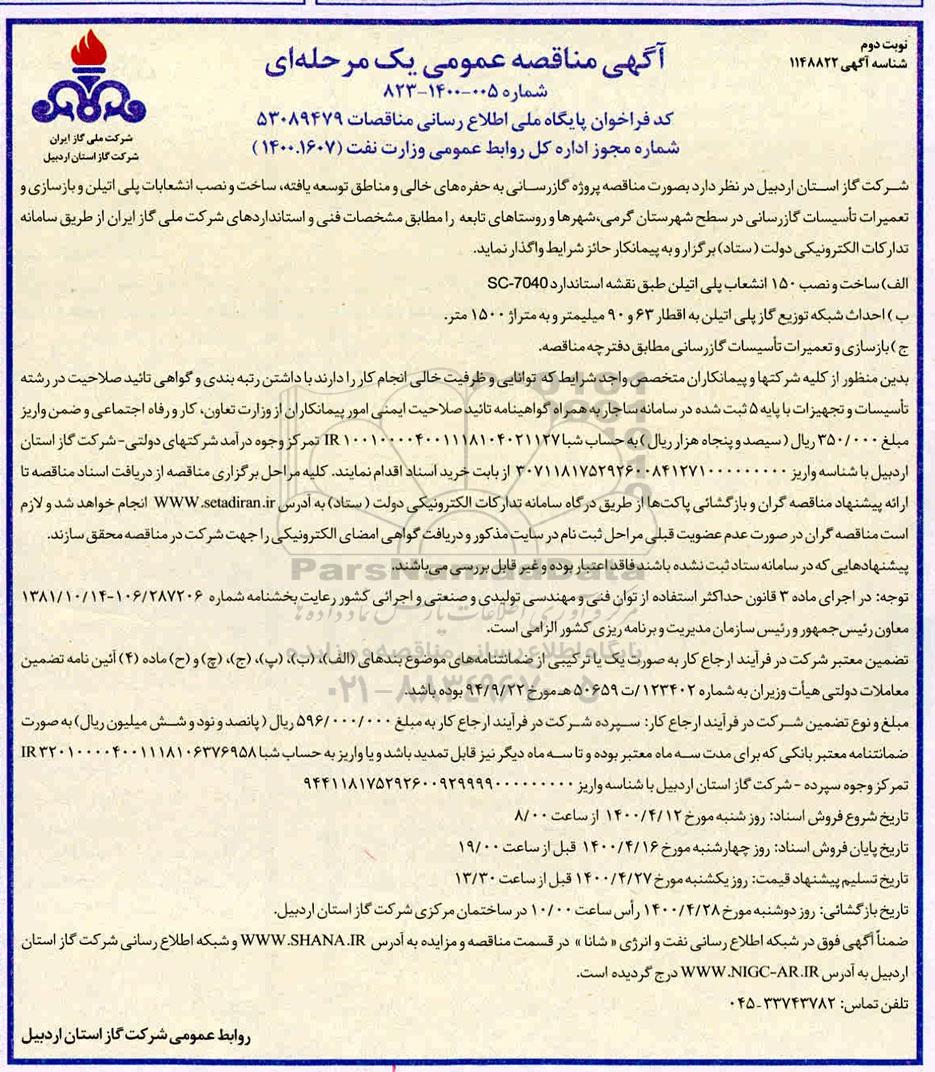 نوبت دوم
شناسه آگهی ۱۱۴۸۸۲۲
آگهی مناقصه عمومی یک مرحله‌ای
شماره ۰۰۵-۱۴۰۰-۸۲۳
کد فراخوان پایگاه ملی اطلاع رسانی مناقصات ۵۳۰۸۹۴۷۹
شماره مجوز اداره کل روابط عمومی وزارت نفت (۱۴۰۰.۱۶۰۷)
شرکت ملی گاز ایران
شرکت گاز استان اردبیل
شرکت گاز استان اردبیل در نظر دارد بصورت مناقصه پروژه گازرسانی به حفره‌های خالی و مناطق توسعه یافته، ساخت و نصب انشعابات پلی اتیلن و بازسازی و
تعمیرات تأسیسات گازرسانی در سطح شهرستان گرمی،شهرها و روستاهای تابعه را مطابق مشخصات فنی و استانداردهای شرکت ملی گاز ایران از طریق سامانه
تدارکات الکترونیکی دولت (ستاد) برگزار و به پیمانکار حائز شرایط واگذار نماید.
الف) ساخت و نصب ۱۵۰ انشعاب پلی اتیلن طبق نقشه استاندارد SC-7040
ب) احداث شبکه توزیع گاز پلی اتیلن به اقطار ۶۳ و ۹۰ میلیمتر و به متراژ ۱۵۰۰ متر.
ج) بازسازی و تعمیرات تأسیسات گازرسانی مطابق دفترچه مناقصه.
بدین منظور از کلیه شرکتها و پیمانکاران متخصص واجد شرایط که توانایی و ظرفیت خالی انجام کار را دارند با داشتن رتبه بندی و گواهی تائید صلاحیت در رشته
تأسیسات و تجهیزات با پایه ۵ ثبت شده در سامانه ساجار به همراه گواهینامه تائید صلاحیت ایمنی امور پیمانکاران از وزارت تعاون، کار و رفاه اجتماعی و ضمن واریز
مبلغ ۳۵۰/۰۰۰ ریال (سیصد و پنجاه هزار ریال) به حساب شبا IR ۱۰۰۱۰۰۰۰۴۰۰۱۱۱۸۱۰۴۰۲۱۱۲۷ تمرکز وجوه درآمد شرکتهای دولتی- شرکت گاز استان
اردبیل با شناسه واریز ۳۰۷۱۱۸۱۷۵۲۹۲۶۰۰۸۴۱۲۷۱۰۰۰۰۰۰۰۰۰ از بابت خرید اسناد اقدام نمایند. کلیه مراحل برگزاری مناقصه از دریافت اسناد مناقصه تا
ارائه پیشنهاد مناقصه گران و بازگشائی پاکت‌ها از طریق درگاه سامانه تدارکات الکترونیکی دولت (ستاد) به آدرس WWW.setadiran.ir انجام خواهد شد و لازم
است مناقصه گران در صورت عدم عضویت قبلی مراحل ثبت نام در سایت مذکور و دریافت گواهی امضای الکترونیکی را جهت شرکت در مناقصه محقق سازند.
پیشنهادهایی که در سامانه ستاد ثبت نشده باشند فاقد اعتبار بوده و غیر قابل بررسی می‌باشند.
توجه: در اجرای ماده ۳ قانون حداکثر استفاده از توان فنی و مهندسی تولیدی و صنعتی و اجرائی کشور رعایت بخشنامه شماره ۱۰۶/۲۸۷۲۰۶-۱۳۸۱/۱۰/۱۴
معاون رئیس‌جمهور و رئیس سازمان مدیریت و برنامه ریزی کشور الزامی است.
تضمین معتبر شرکت در فرآیند ارجاع کار به صورت یک یا ترکیبی از ضمانتنامه‌های موضوع بندهای (الف)، (ب)، (پ)، (ج)، (چ) و (ح) ماده (۴) آئین نامه تضمین
معاملات دولتی هیأت وزیران به شماره ۱۲۳۴۰۲/ت ۵۰۶۵۹ هـ مورخ ۹۴/۹/۲۲ بوده باشد.
مبلغ و نوع تضمین شرکت در فرآیند ارجاع کار: سپرده شرکت در فرآیند ارجاع کار به مبلغ ۵۹۶/۰۰۰/۰۰۰ ریال (پانصد و نود و شش میلیون ریال) به صورت
ضمانتنامه معتبر بانکی که برای مدت سه ماه معتبر بوده و تا سه ماه دیگر نیز قابل تمدید باشد و یا واریز به حساب شبا IR ۳۲۰۱۰۰۰۰۴۰۰۱۱۱۸۱۰۶۳۷۶۹۵۸
تمرکز وجوه سپرده - شرکت گاز استان اردبیل با شناسه واریز ۹۴۴۱۱۸۱۷۵۲۹۲۶۰۰۹۲۹۹۹۹۰۰۰۰۰۰۰۰۰۰
تاریخ شروع فروش اسناد: روز شنبه مورخ ۱۴۰۰/۴/۱۲ از ساعت ۸/۰۰
تاریخ پایان فروش اسناد: روز چهارشنبه مورخ ۱۴۰۰/۴/۱۶ قبل از ساعت ۱۹/۰۰
تاریخ تسلیم پیشنهاد قیمت: روز یکشنبه مورخ ۱۴۰۰/۴/۲۷ قبل از ساعت ۱۳/۳۰
تاریخ بازگشائی: روز دوشنبه مورخ ۱۴۰۰/۴/۲۸ رأس ساعت ۱۰/۰۰ در ساختمان مرکزی شرکت گاز استان اردبیل.
ضمناً آگهی فوق در شبکه اطلاع رسانی نفت و انرژی «شانا» در قسمت مناقصه و مزایده به آدرس WWW.SHANA.IR و شبکه اطلاع رسانی شرکت گاز استان
اردبیل به آدرس WWW.NIGC-AR.IR درج گردیده است.
تلفن تماس: ۳۳۷۴۳۷۸۲-۰۴۵
روابط عمومی شرکت گاز استان اردبیل
ParsNamadData
پایگاه اطلاع رسانی مناقصه و مزایده
۰۲۱-۸۸۳۴۹۶۷۰-۵